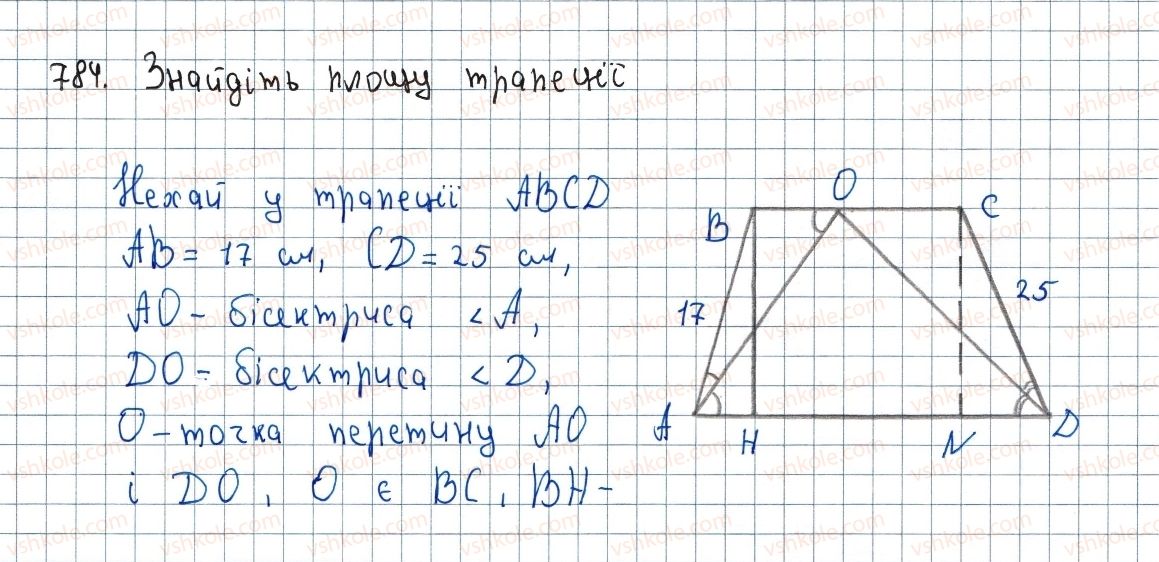 784. Знайдіть площу трапеції
Нехай у трапеції ABCD
AB = 17 см, CD = 25 см,
AO - бісектриса < A,
DO - бісектриса < D,
O - точка перетину AO
і DO, O є BC, BH -
B
O
C
17
25
A
H
N
D
vshkole.com